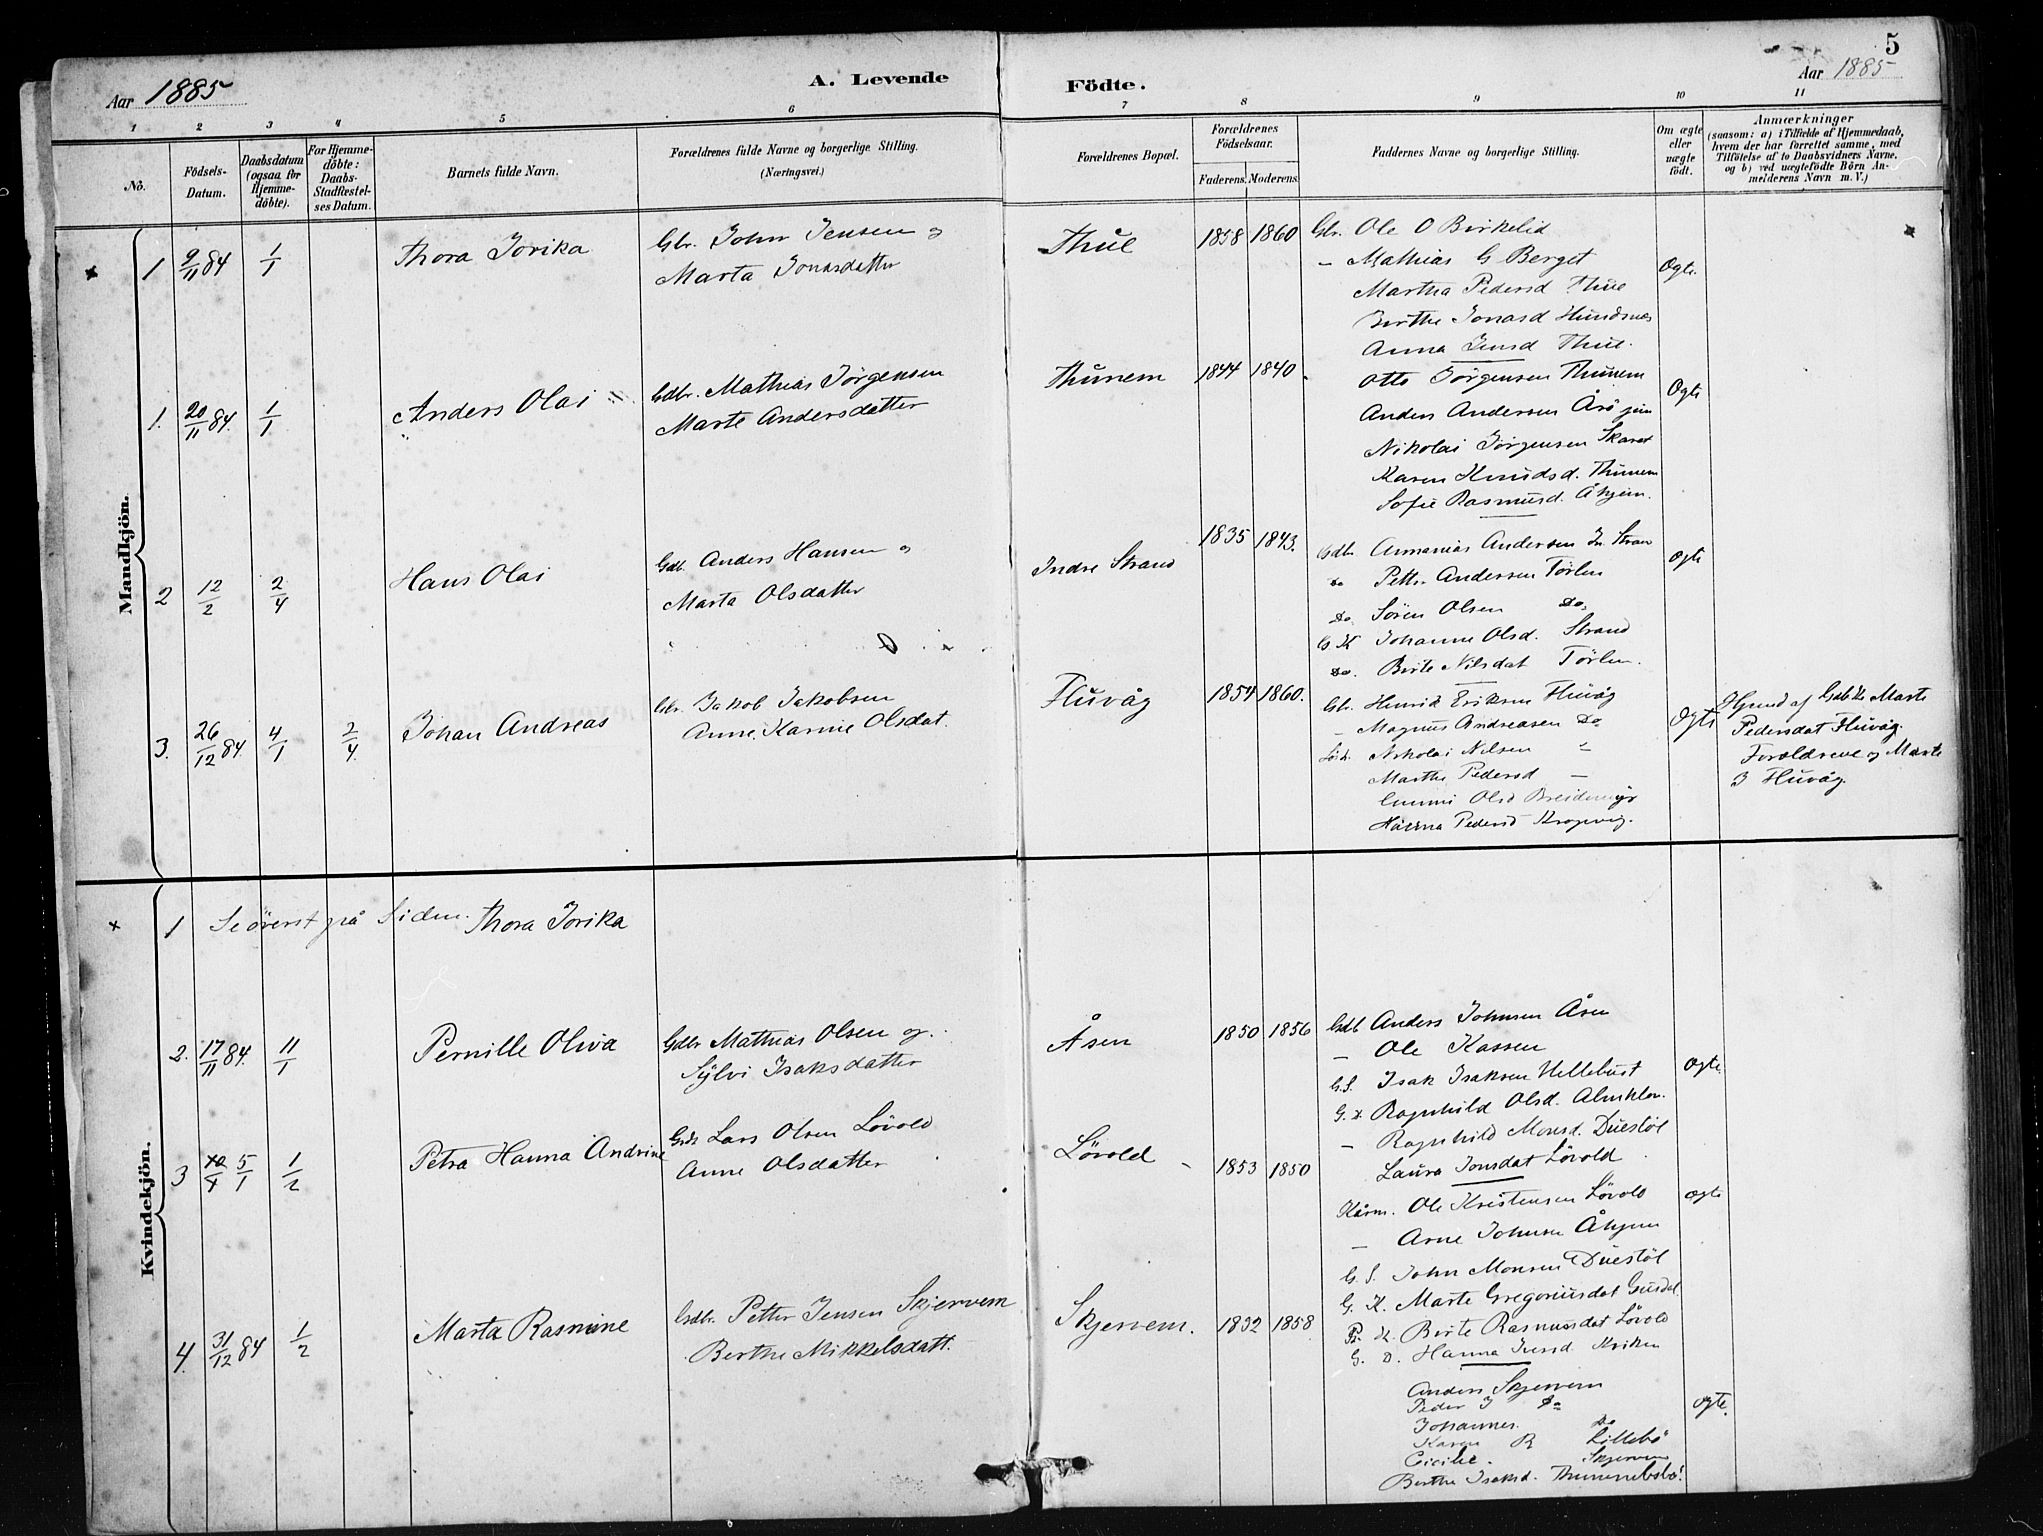 5
Aar 1885
A. Levende
Födte.
Aar 1885
1 2 3 4 5 6 7 8 9 10 11
No.
Födsels-Datum.
Daabsdatum (ogsaa for Hjemme-döbte).
For Hjemme-döbte: Daabs-Stadfæstel-ses Datum.
Barnets fulde Navn.
Forældrenes fulde Navne og borgerlige Stilling. (Næringsvei.)
Forældrenes Bopæl.
Forældrenes Födselsaar.
Faderens. Moderens.
Faddernes Navne og borgerlige Stilling.
Om ægte eller uægte födt.
Anmærkninger
(saasom: a) i Tilfælde af Hjemmedaab,
hvem der har forrettet samme, med
Tilföielse af to Daabsvidners Navne,
og b) ved uægtefödte Börn An-
melderens Navn m. V.)
Mandkjön.
1 9/11 84 1/1 Thora Jorika Gbr. John Jensen og Thue 1858 1860 Gbr. Ole O Birkelid
Marta Jonasdatter – Mathias G Berget Ogte
Martha Pedersd Thue
Birthe Jonasd Hundsnes
Anna Jensd Thue.
1. 20/11 84. 1/1 Anders Olai Gdbr. Mathias Jörgensen Thunem 1844 1840 Otto Jörgensen Thunem Ogte
Marte Andersdatter Anders Andersen Årö
Nikolai Jörgensen Skaret
Karen Knudsd. Thunem
Sofie Rasmusd. Åhjem.
2 12/2 2/4 Hans Olai Gdb. Anders Hansen og Indre Strand 1835 1843. Gdbr. Annanias Andersen In. Stran Ogte
Marta Olsdatter Do Petter Andersen Törlen
Do. Sören Olsen Do.
G K Johanne Olsd. Strand
Do. Birte Nilsdat Törlen.
3. 26/12 84. 4/1 2/4. Johan Andreas Gbr. Jakob Jakobsen Fluvåg 1854 1860. Gbr. Henrik Eriksen Fluvåg Ogte
Anne Karine Olsdat. – Magnus Andreasen Do
Nikolai Nilsen –
Marthe Pedersd –
Olsd
Pedersd
Hjemd af Gdb K. Marte
Pedersdat Fluvåg.
Forældrene og Marte
3 Fluvåg.
Kvindekjön.
1 Se överst på Siden. Thora Jorika
2. 17/11 84. 11/1 Pernille Oliva Gdbr Mathias Olsen og. Åsen 1850 1856 Gdb Anders Johnsen Åsen
Sylvi Isaksdatter – Ole Kassen
G.S. Isak Isaksen Hellebust Ogte.
G. D. Ragnhild Olsd. Almklov.
– Ragnhild Monsd. Duestöl
Laura Jonsdat Lövold
3 5/1 1/2 Petra Hanna Andrine Gdb Lars Olsen Lövold Lövold 1853 1850
Anne Olsdatter Kårm. Ole Kristensen Lövold Ogte
– Arne Johnsen Åhjem
G. S. John Monsen Duestöl
G. K. Marte Gregoriusdat Gusdal
K. Birte Rasmusdat Lövold
G. D. Hanna Jensd Kviken
4. 31/12 84 1/2 Marta Rasmine Gdbr. Petter Jensen Skjervem Skjervem. 1832 1858
Berthe Mikkelsdatt. Anders Skjervem
Peder J Do Ogte.
Johannes Do
Karen R Lillebö
Cicilie. Skjervem
Berthe Isaksd.